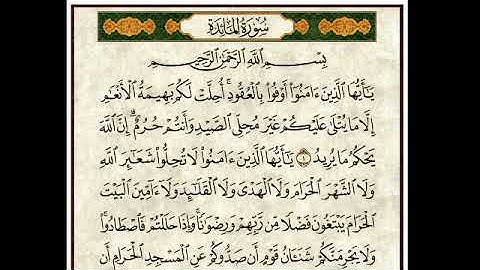 سُورَةُ المَائِدَة
بِسْمِ اللَّهِ الرَّحْمَٰنِ الرَّحِيمِ
يَٰٓأَيُّهَا ٱلَّذِينَ ءَامَنُوٓا۟ أَوْفُوا۟ بِٱلْعُقُودِ ۚ أُحِلَّتْ لَكُم بَهِيمَةُ ٱلْأَنْعَٰمِ
إِلَّا مَا يُتْلَىٰ عَلَيْكُمْ غَيْرَ مُحِلِّى ٱلصَّيْدِ وَأَنتُمْ حُرُمٌ ۗ إِنَّ ٱللَّهَ
يَحْكُمُ مَا يُرِيدُ ١ يَٰٓأَيُّهَا ٱلَّذِينَ ءَامَنُوا۟ لَا تُحِلُّوا۟ شَعَٰٓئِرَ ٱللَّهِ
وَلَا ٱلشَّهْرَ ٱلْحَرَامَ وَلَا ٱلْهَدْىَ وَلَا ٱلْقَلَٰٓئِدَ وَلَآ ءَآمِّينَ ٱلْبَيْتَ
ٱلْحَرَامَ يَبْتَغُونَ فَضْلًا مِّن رَّبِّهِمْ وَرِضْوَٰنًا ۚ وَإِذَا حَلَلْتُمْ فَٱصْطَادُوا۟ ۚ
وَلَا يَجْرِمَنَّكُمْ شَنَـَٔانُ قَوْمٍ أَن صَدُّوكُمْ عَنِ ٱلْمَسْجِدِ ٱلْحَرَامِ أَن